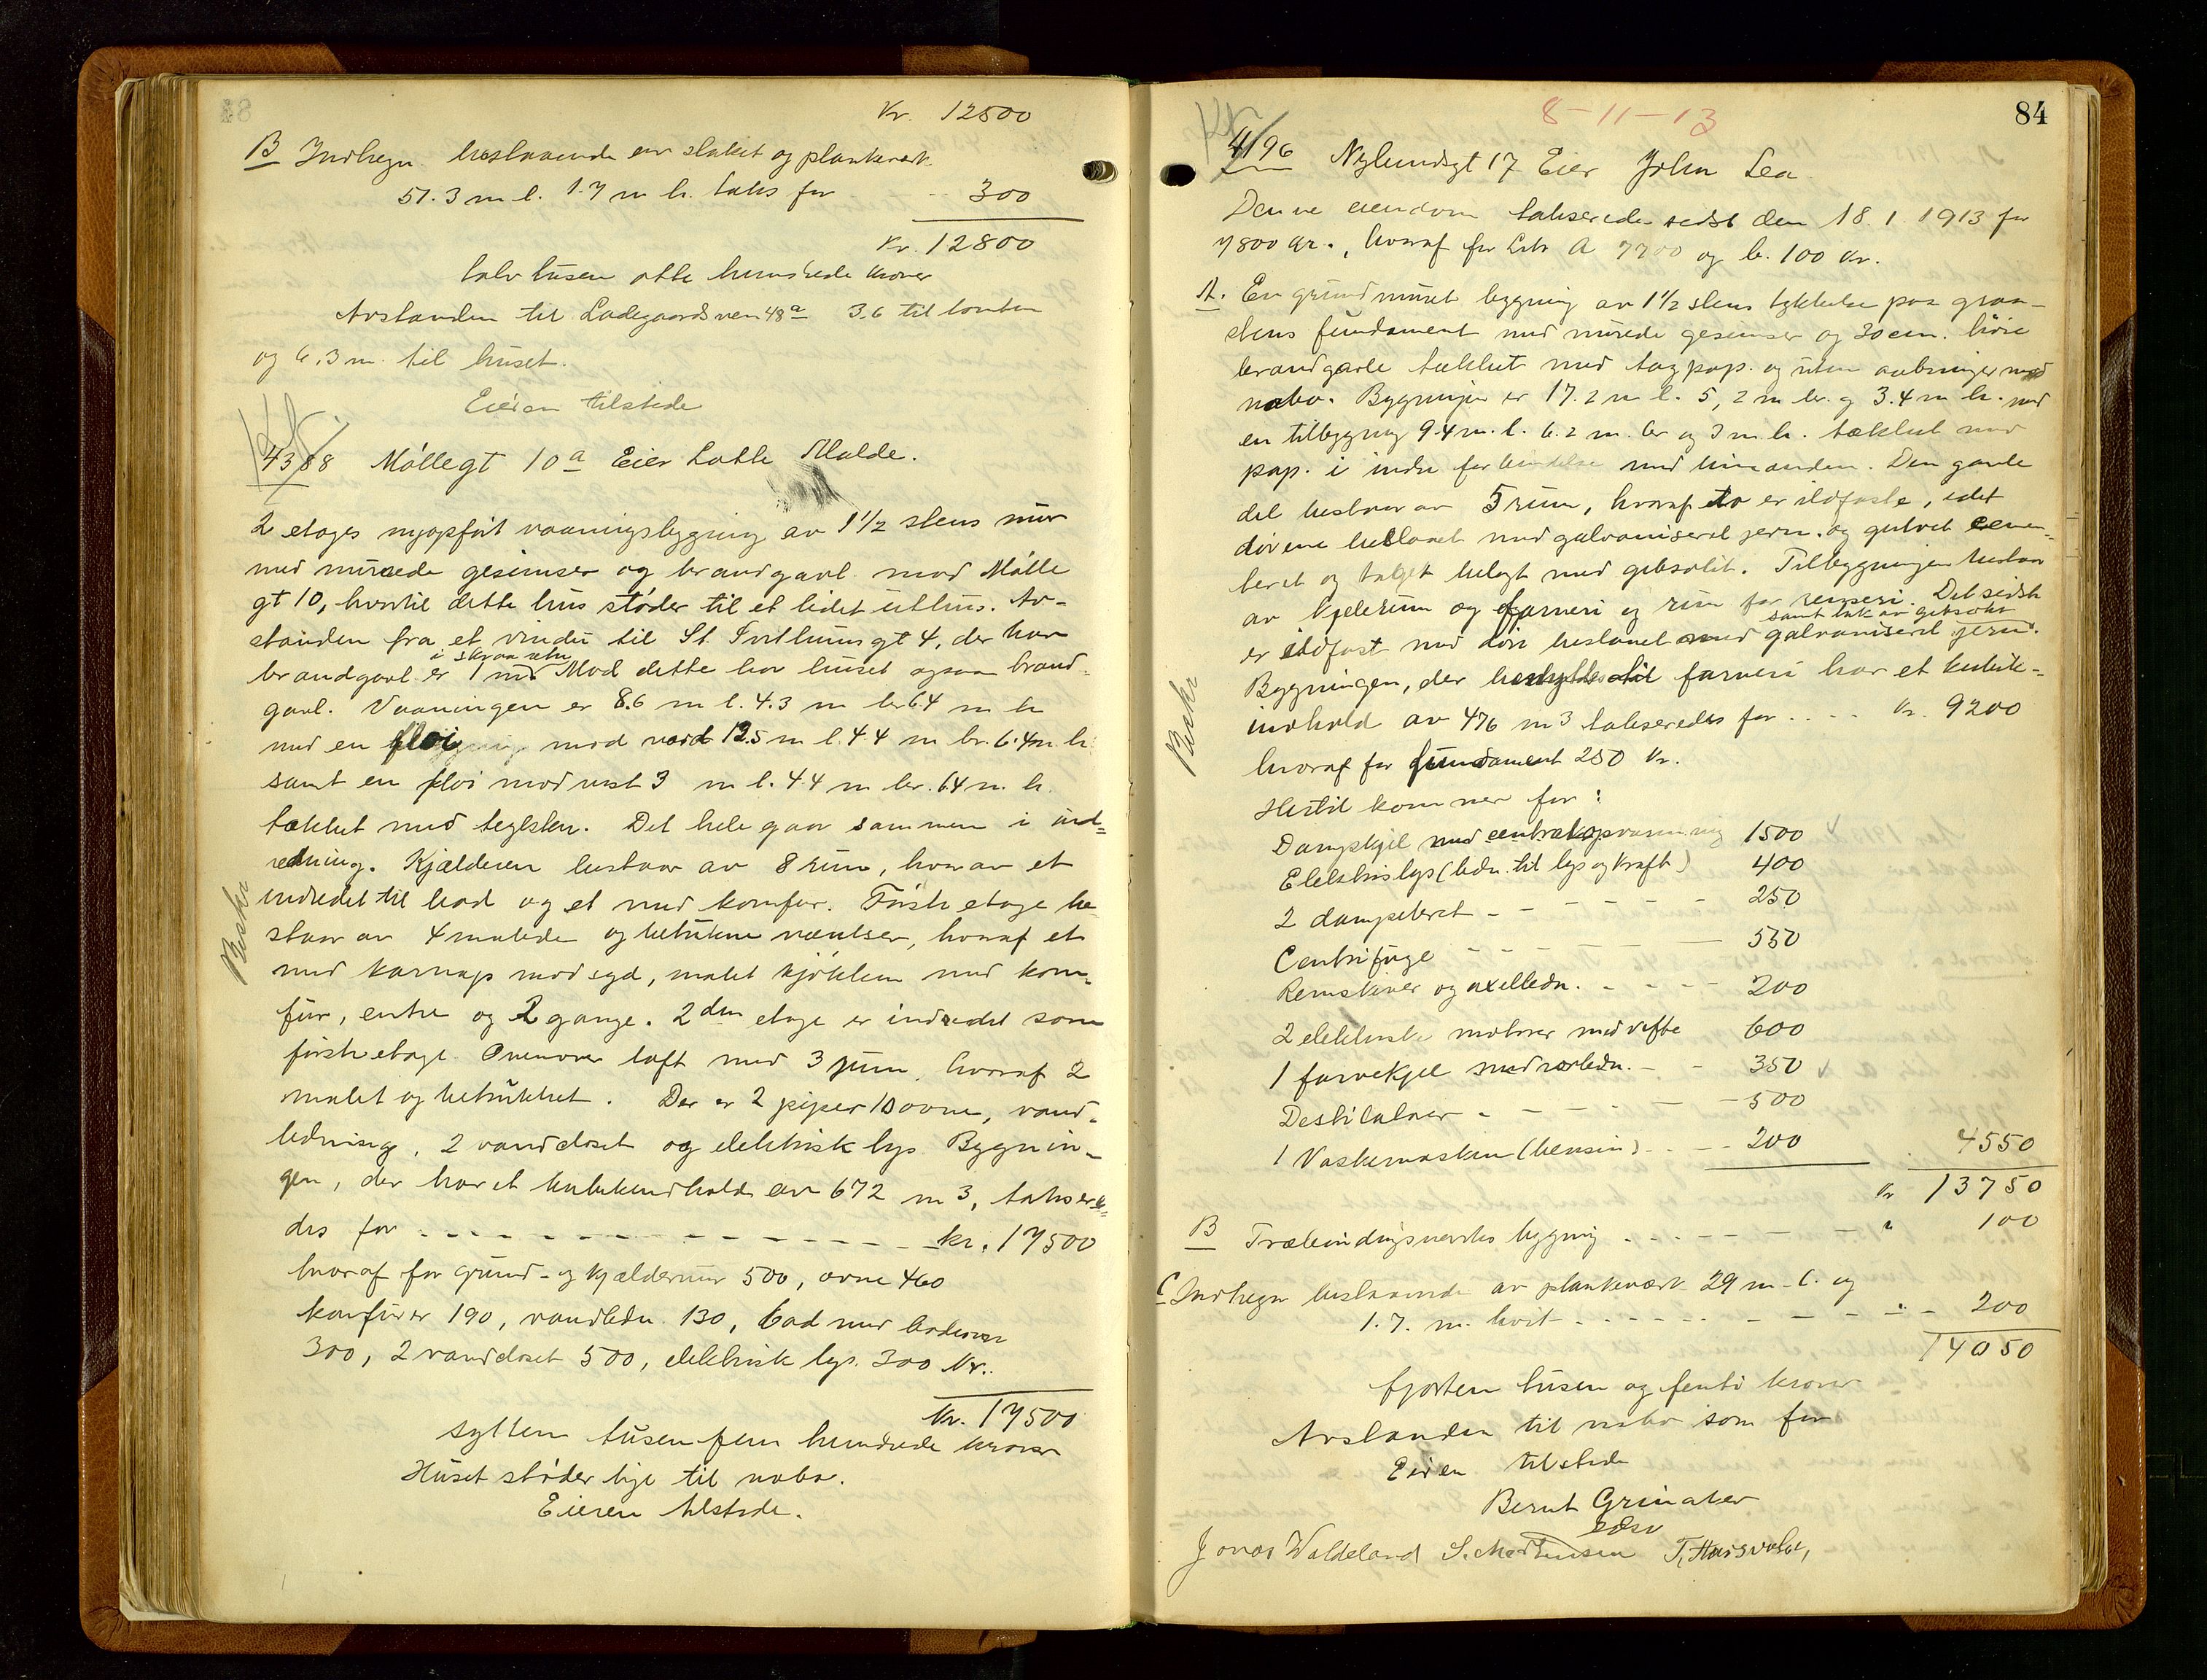 Kr. 12500
B Indhegn bestaaende av stakit og plankverk
57.3 m l. 1.7 m h. taks for - - 300
Kr. 12800
tolv tusen otte hundrede kroner
Avstanden til Ladegaardsveien 48a 3.6 til tomten
og 6.3 m til huset.
Eieren tilstede
4388 Møllegt 10a Eier Lotte Malde.
2 etages nyopført vaaningsbygning av 1 1/2 stens mur
med murede gesimser og brandgavl mod Mølle
gt 10, hvortil dette hus støder til et lidet uthus. Av-
standen fra et vindu til St. Svithuns gt 4, der har
i skraa retn
brandgavl er 1 m Mod dette har huset ogsaa brand-
gavl. Vaaningen er 8.6 m l. 4.3 m br 6.4 m h
med en fløi mod nord 12.5 m l. 4.4 m br. 6.4 m. h.
samt en fløi mod vest 3 m l. 4.4 m br. 6.4 m. h.
tækket med teglsten. Det hele gaar sammen i ind-
redning. Kjælderen bestaar av 8 rum, hvorav et
indredet til bad og et med komfur. Første etage be-
staar av 4 malede og betrukne værelser, hvoraf et
med karnap mod syd, malet kjøkken med kom-
fur, entre og 2 gange. 2den etage er indredet som
første etage. Ovenover loft med 3 rum, hvoraf 2
malet og betrukket. Der er 2 piper 10 ovne, vand-
ledning, 2 vandcloset og elektrisk lys. Bygnin-
gen, der har et kubikindhold av 672 m3, taksere-
des for - - - - - - - - - - kr. 17500
hvoraf for grund- og kjældermur 500, ovne 460
komfurer 190, vandledn. 130, bad med badeovn
300, 2 vandcloset 500, elektrisk lys. 300 Kr.
Kr. 17500
sytten tusen fem hundrede kroner
Huset støder lige til nabo.
Eieren tilstede.
Beskr
84
8-11-13
4196 Nylundsgt 17 Eier John Lea
Denne eiendom takseredes sidst den 18.1.1913 for
7800 Kr., hvoraf for Litr A 7700 og b. 100 Kr.
A. En grundmuret bygning av 1 1/2 stens tykkelse paa graa-
stens fundament med murede gesimser og 30 cm. høie
brandgavle tækket med tagpap. og uten aabninger mod
nabo. Bygningen er 17.2 m l. 5,2 m br. og 3.4 m h. med
en tilbygning 9.4 m. l. 6.2 m. br og 3 m h. tækket med
pap. i indre forbindelse med hinanden. Den gamle
del bestaar av 5 rum, hvoraf to er ildfaste, idet
dørene beslaaet med galvaniseret jern. og gulvet cemen-
teret og taget belagt med gibsolit. Tilbygningen bestaar
av kjelerum og farveri og rum for renseri. Det sidste
samt tak av gibsolit
er ildfast med dør beslaaet med galvaniseret jern.
Bygningen, der benyttes til farveri har et kubik-
indhold av 476 m3 takseredes for . . . . Kr. 9200
hvoraf for fundament 250 Kr.
Hertil kommer for:
Dampkjel med centralopvarmning 1500
Elektrisk lys (ledn. til lys og kraft) 400
2 dampateret - - - - - - 250
Centrifuge - - - - - 550
Remskiver og axelledn. - - - - 200
2 elektriske motorer med vifte 600
1 farvekjel med rørledn. - - 350
Destilatør - - - - - 500
1 Vaskemaskin (bensin) - - - 200 4550
Kr 13750
B Træbindingsverks bygning - - - - - - " 100
C Indhegn bestaaende av plankeværk 29 m l. og
1.7. m. høit - - - - - - - - " - 200
14050
fjorten tusen og femti kroner
Avstanden til nabo som før
Eieren tilstede
Bernt Grinaker
Jonas Waldeland S. Mortensen
Beskr